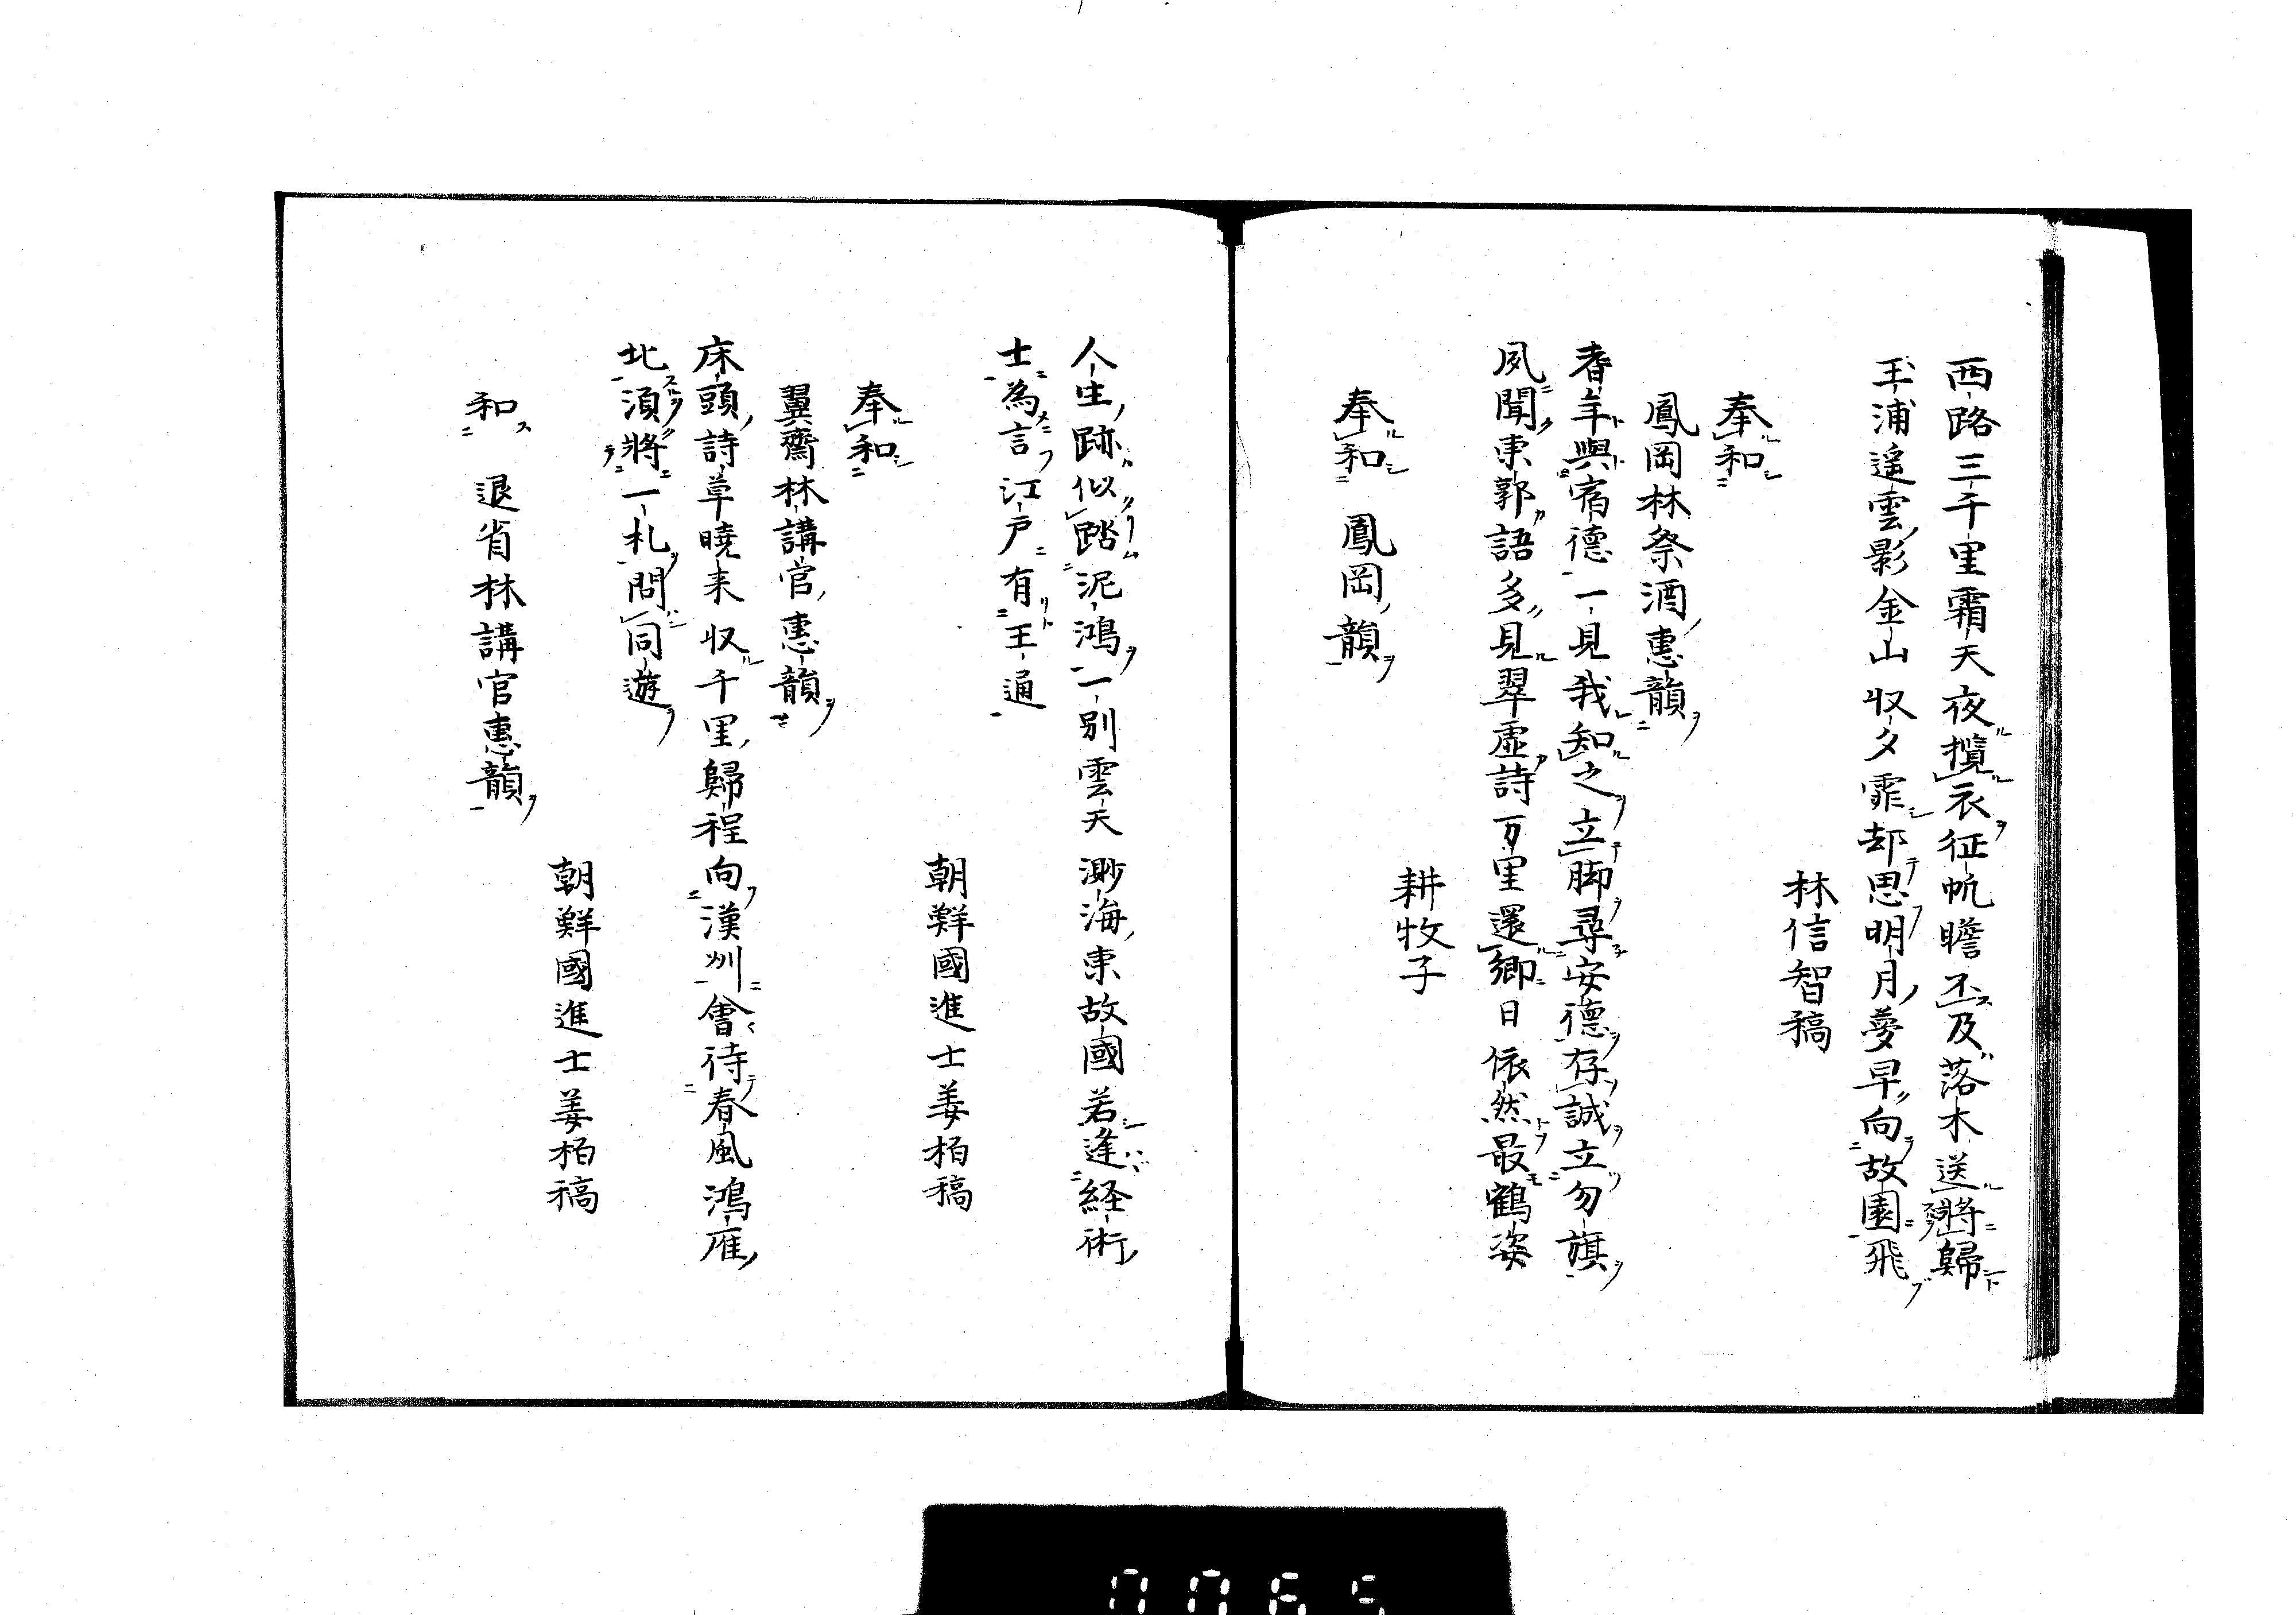 西路三千里霜天夜攬衣征帆瞻不及落木送將歸
玉浦遥雲影金山収夕霏却思明月夢早向故園飛
林信智稿
奉和
鳳岡林祭酒惠韻
春年與宿德一見我知之立脚尋安德存誠立勿旗
夙聞東郭語多見翠虚詩万里還鄉日依然最鶴姿
耕牧子
奉和　鳳岡韻
人生跡似踏泥鴻一別雲天渺海東故國若逢経術
士為言江戸有王通
朝鮮國進士姜栢稿
奉和
翼齋林講官惠韻
床頭詩草曉来収千里歸程向漢州會待春風鴻雁
北須將一札問同遊
朝鮮國進士姜栢稿
和　退省林講官惠韻